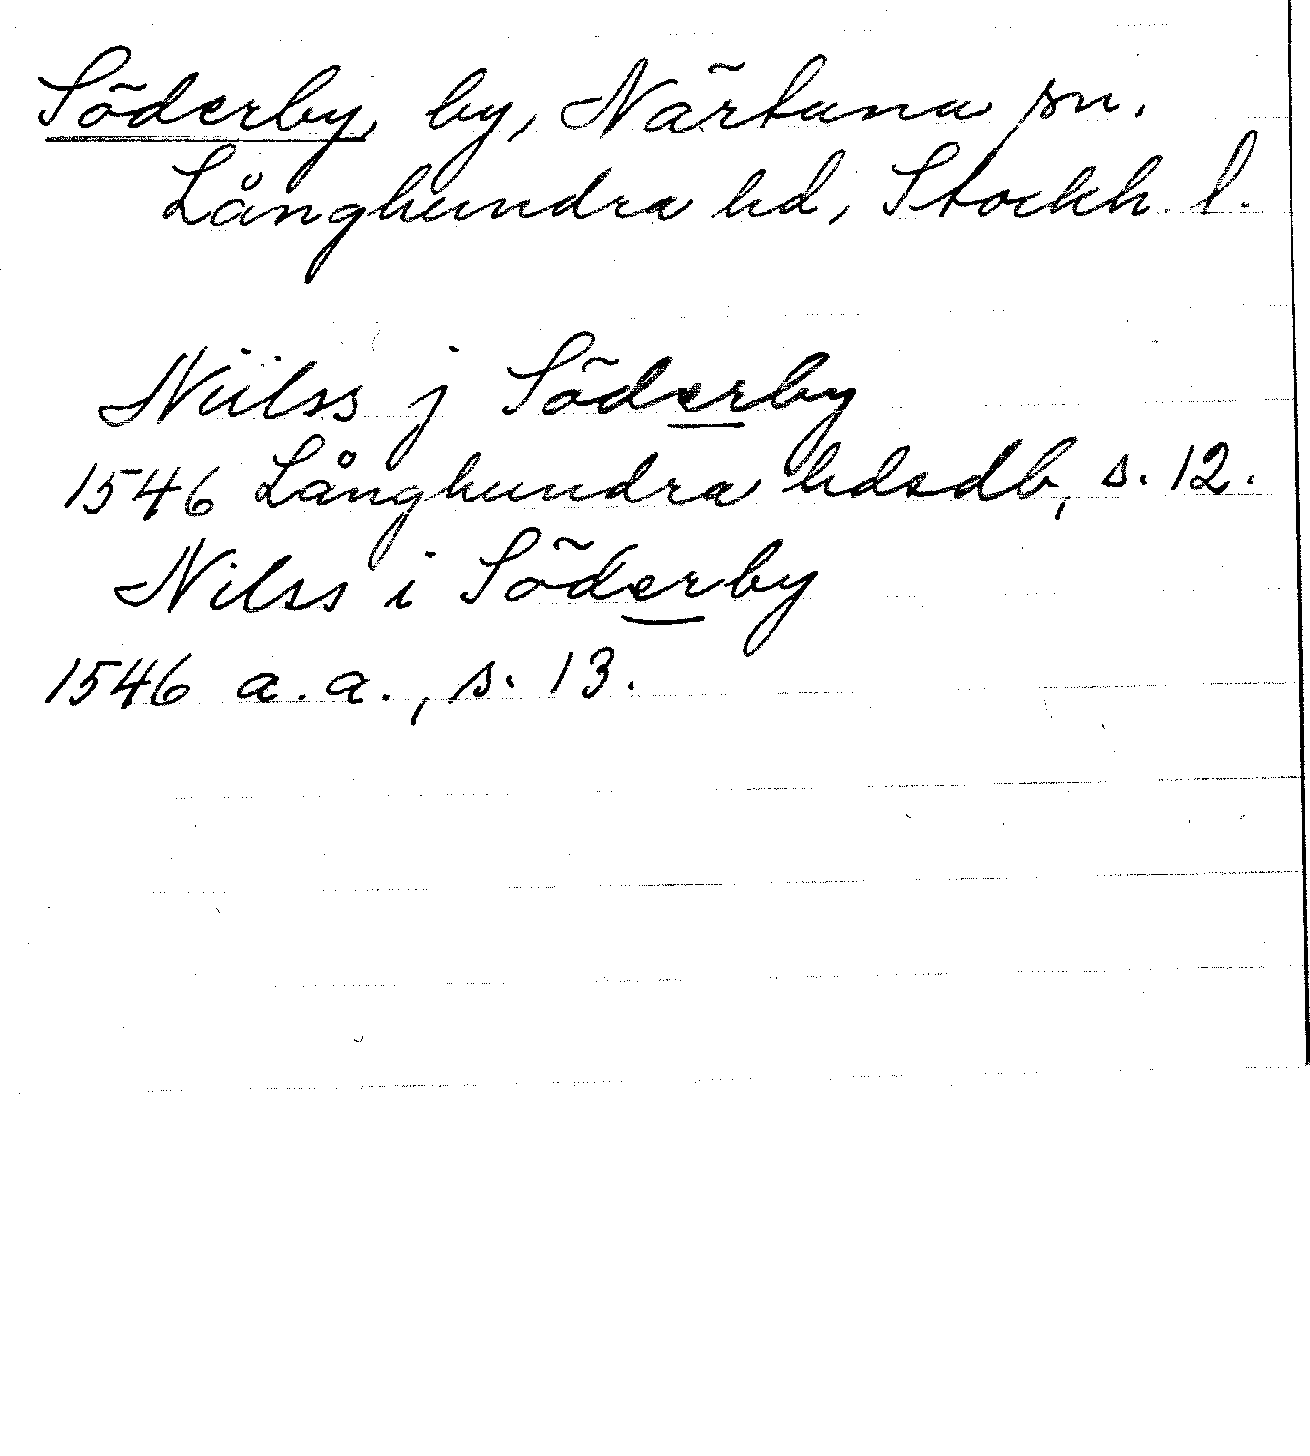 Söderby, by, Närtuna sn.
Långhundra hd, Stockh. l.
Niilss j Söderby
1546 Långhundra hdsdb, s. 12.
Nilss i Söderby
1546 a.a., s. 13.